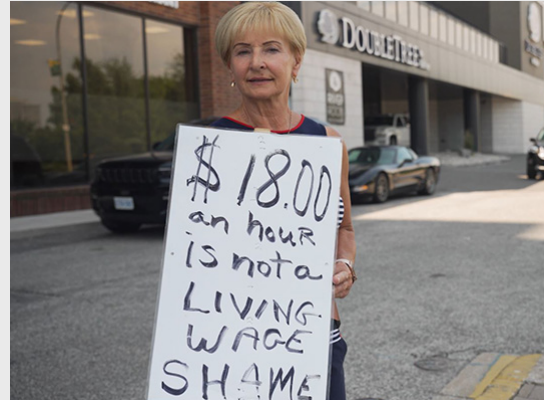 DOUBLETREE
$18.00
an houR
is not a
LIVING
WAGE
SHAME